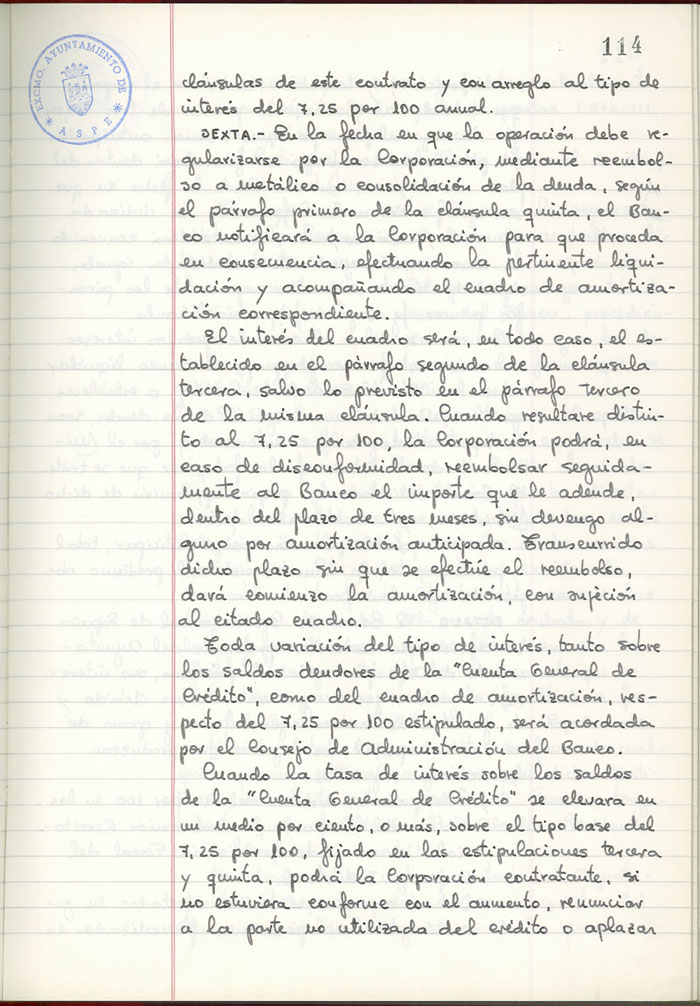 114
EXCMO. AYUNTAMIENTO DE
* ASPE *
cláusulas de este contrato y con arreglo al tipo de
interés del 7,25 por 100 anual.
SEXTA.- En la fecha en que la operación debe re-
gularizarse por la Corporación, mediante reembol-
so a metálico o consolidación de la deuda, según
el párrafo primero de la cláusula quinta, el Ban-
co notificará a la Corporación para que proceda
en consecuencia, efectuando la pertinente liqui-
dación y acompañando el cuadro de amortiza-
ción correspondiente.
El interés del cuadro será, en todo caso, el es-
tablecido en el párrafo segundo de la cláusula
tercera, salvo lo previsto en el párrafo tercero
de la misma cláusula. Cuando resultare distin-
to al 7,25 por 100, la Corporación podrá, en
caso de disconformidad, reembolsar seguida-
mente al Banco el importe que le adeude,
dentro del plazo de tres meses, sin devengo al-
guno por amortización anticipada. Transcurrido
dicho plazo sin que se efectúe el reembolso,
dará comienzo la amortización, con sujeción
al citado cuadro.
Toda variación del tipo de interés, tanto sobre
los saldos deudores de la "Cuenta General de
Crédito", como del cuadro de amortización, res-
pecto del 7,25 por 100 estipulado, será acordada
por el Consejo de Administración del Banco.
Cuando la tasa de interés sobre los saldos
de la "Cuenta General de Crédito" se elevara en
un medio por ciento, o más, sobre el tipo base del
7,25 por 100, fijado en las estipulaciones tercera
y quinta, podrá la Corporación contratante, si
no estuviera conforme con el aumento, renunciar
a la parte no utilizada del crédito o aplazar